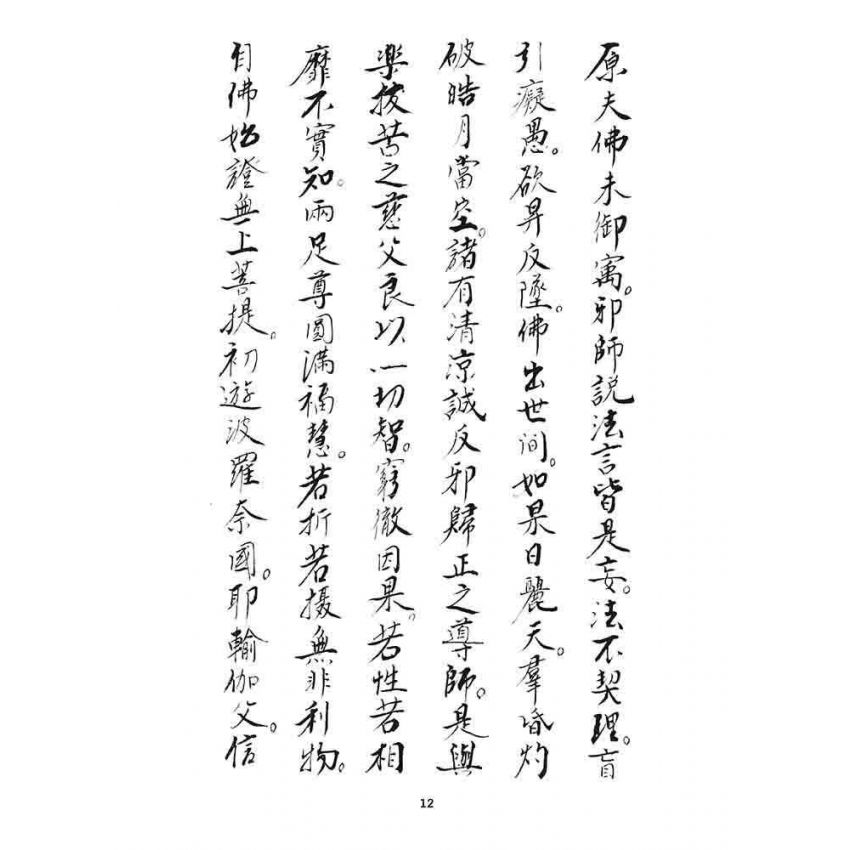 原夫佛未御寓。邪師說法言皆是妄。法不契理。盲
引癡愚。欲昇反墜。佛出世间。如杲日麗天。羣昏灼
破皓月當空。諸有清涼誠反邪歸正之導師。是與
樂拔苦之慈父良以一切智。窮徹因果。若性若相
靡不實知。兩足尊圓滿福慧。若折若摄無非利物。
自佛始證無上菩提。初遊波羅奈國。耶輸伽父。信
12